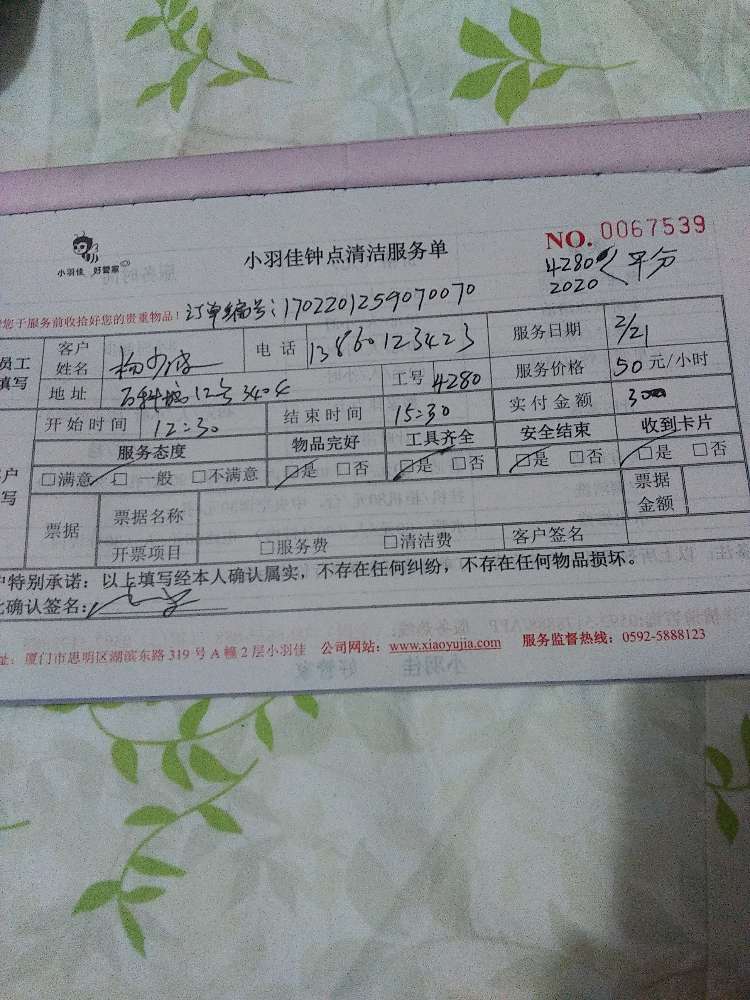 小羽佳 好管家
小羽佳钟点清洁服务单
NO. 0067539
4280 平分
2020
您于服务前收拾好您的贵重物品！订单编号：1702201259070070
员工 填写 客户姓名 电话 13860123423 服务日期 2/21
地址 12号340 工号 4280 服务价格 50元/小时
开始时间 12:30 结束时间 15:30 实付金额 300
服务态度 物品完好 工具齐全 安全结束 收到卡片
□满意 □一般 □不满意 □是 □否 □是 □否 □是 □否 □是 □否
票据 票据名称 票据金额
开票项目 □服务费 □清洁费 客户签名
户特别承诺：以上填写经本人确认属实，不存在任何纠纷，不存在任何物品损坏。
此确认签名：
址：厦门市思明区湖滨东路 319 号 A 幢 2 层小羽佳 公司网站：www.xiaoyujia.com 服务监督热线：0592-5888123